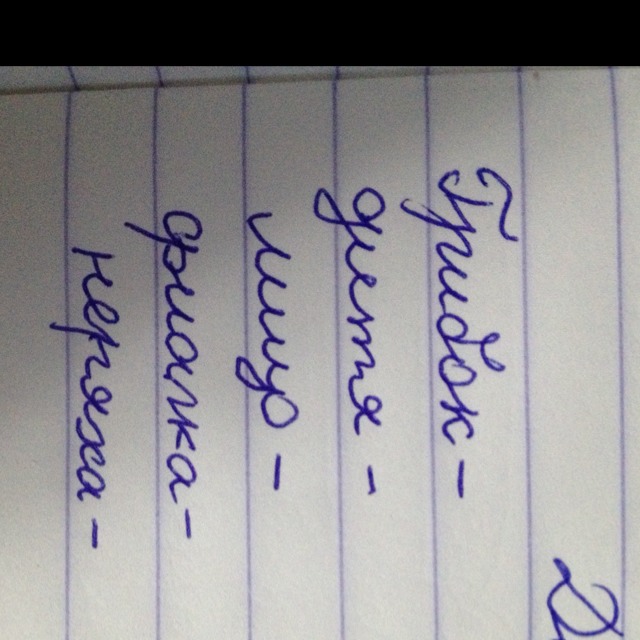 Грибок -
дитя -
лицо -
фиалка -
неряха -